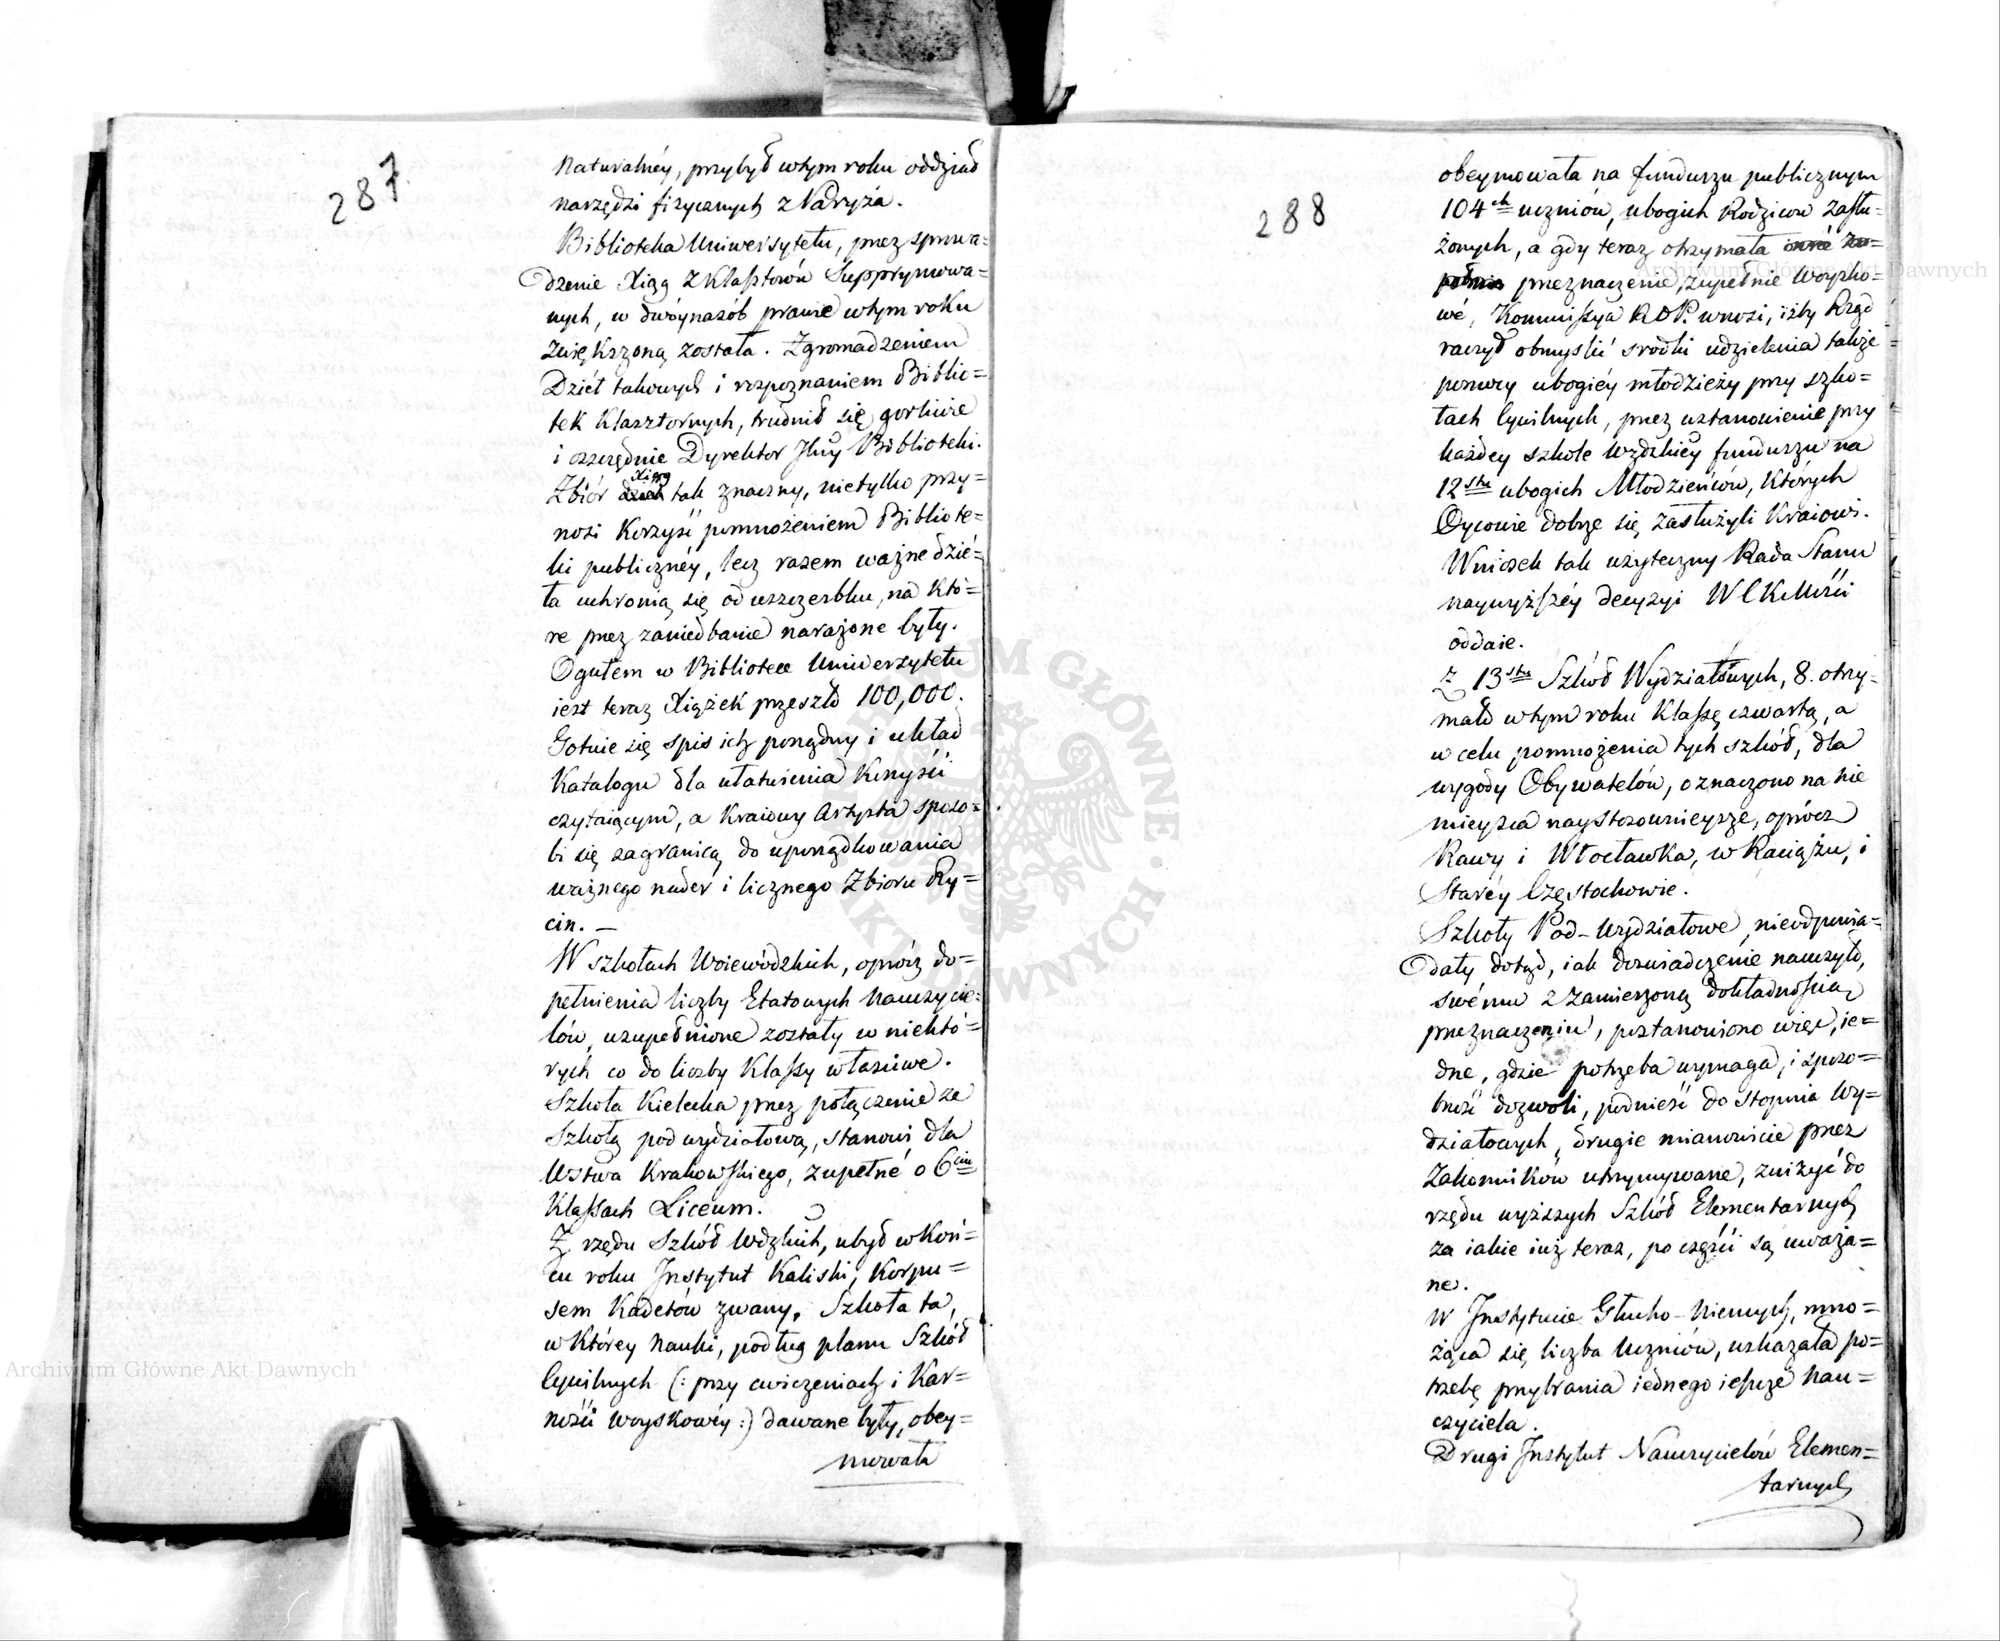 287
Naturalnéy, przybył w tym roku oddział
narzędzi fizycznych z Paryża.
Biblioteka Uniwersytetu, przez sprowa=
dzenie Xiąg z Klasztorów Supprymowa=
nych, w dwóynasób prawie w tym roku
zwiększoną została. Zgromadzeniem
Dzieł takowych i rozpoznaniem Biblio=
tek Klasztornych, trudnił się gorliwie
i oszczędnie Dyrektor Jlny Biblioteki.
Xiąg
Zbiór dzieł tak znaczny, nietylko przy=
nosi Korzyść pomnożeniem Bibliote=
ki publicznéy, lecz razem ważne dzie=
ła uchronią się od uszczerbku, na któ=
re przez zaniedbanie narażone były.
Ogułem w Bibliotece Uniwersytetu
iest teraz Xiążek przeszło 100,000.
Gotuie się spis ich porządny i układ
Katalogu dla ułatwienia Korzyści
czytaiącym, a Kraiowy Artysta sposo=
bi się zagranicą do uporządkowania
ważnego nader i licznego Zbioru Ry=
cin. —
W szkołach Woiewódzkich, oprócz do=
pełnienia liczby Etatowych Nauczycie=
lów, uzupełnione zostały w niektó=
rych co do liczby Klassy właściwe.
Szkoła Kielecka przez połączenie ze
Szkołą podwydziałową, stanowi dla
Wztwa Krakowskiego, zupełné o 6ciu
Klassach Liceum.
Z rzędu Szkół Wdzkich, ubył w Koń=
cu roku Instytut Kaliski, Korpu=
sem Kadetów zwany. Szkoła ta,
w Którey Nauki, podług planu Szkół
Cywilnych (: przy ćwiczeniach i Kar=
ności woyskowéy :) dawane były, obey=
mowała
288
obeymowała na funduszu publicznym
104ch uczniów, ubogich Rodziców zasłu=
żonych, a gdy teraz otrzymała
przeznaczenie zupełnie woysko=
wé, Kommissya ROP. wnosi, iżby Rząd
raczył obmyslić srodki udzielenia takiże
pomocy ubogiéy młodzieży przy szko=
łach Cywilnych, przez ustanowienie przy
każdey szkole Wdzkiéy funduszu na
12stu ubogich Młodzieńców, których
Oycowie dobrze się zasłużyli Kraiowi.
Wniosek tak użyteczny Rada Stanu
naywyższéy decyzyi WCKMści
oddaie.
Z 13stu Szkół Wydziałowych, 8. otrzy=
mało w tym roku Klassę czwartą, a
w celu pomnożenia tych szkół, dla
wygody Obywatelów, oznaczono na nie
mieysca naystosownieysze, oprócz
Rawy i Włocławka, w Raciążu, i
Staréy Częstochowie.
Szkoły Pod-wydziałowe, nieodpowia=
dały dotąd, iak doswiadczenie nauczyło,
swému z zamierzoną dokładnością
przeznaczeniu, postanowiono więc, ie=
dne, gdzie potrzeba wymaga, i sposo=
bność dozwoli, podnieść do Stopnia Wy=
działowych, drugie mianowicie przez
Zakonników utrzymywane, zniżyć do
rzędu wyższych Szkół Elementarnych
za iakie iuż teraz, po części są uważa=
ne.
W Instytucie Głucho-Niemych, mno=
żąca się liczba Uczniów, wskazała po=
trzebę przybrania iednego ieszcze Nau=
czyciela.
Drugi Instytut Nauczycielów Elemen=
tarnych
Archiwum Główne Akt Dawnych
Archiwum Główne Akt Dawnych
ARCHIWUM GŁÓWNE AKT DAWNYCH